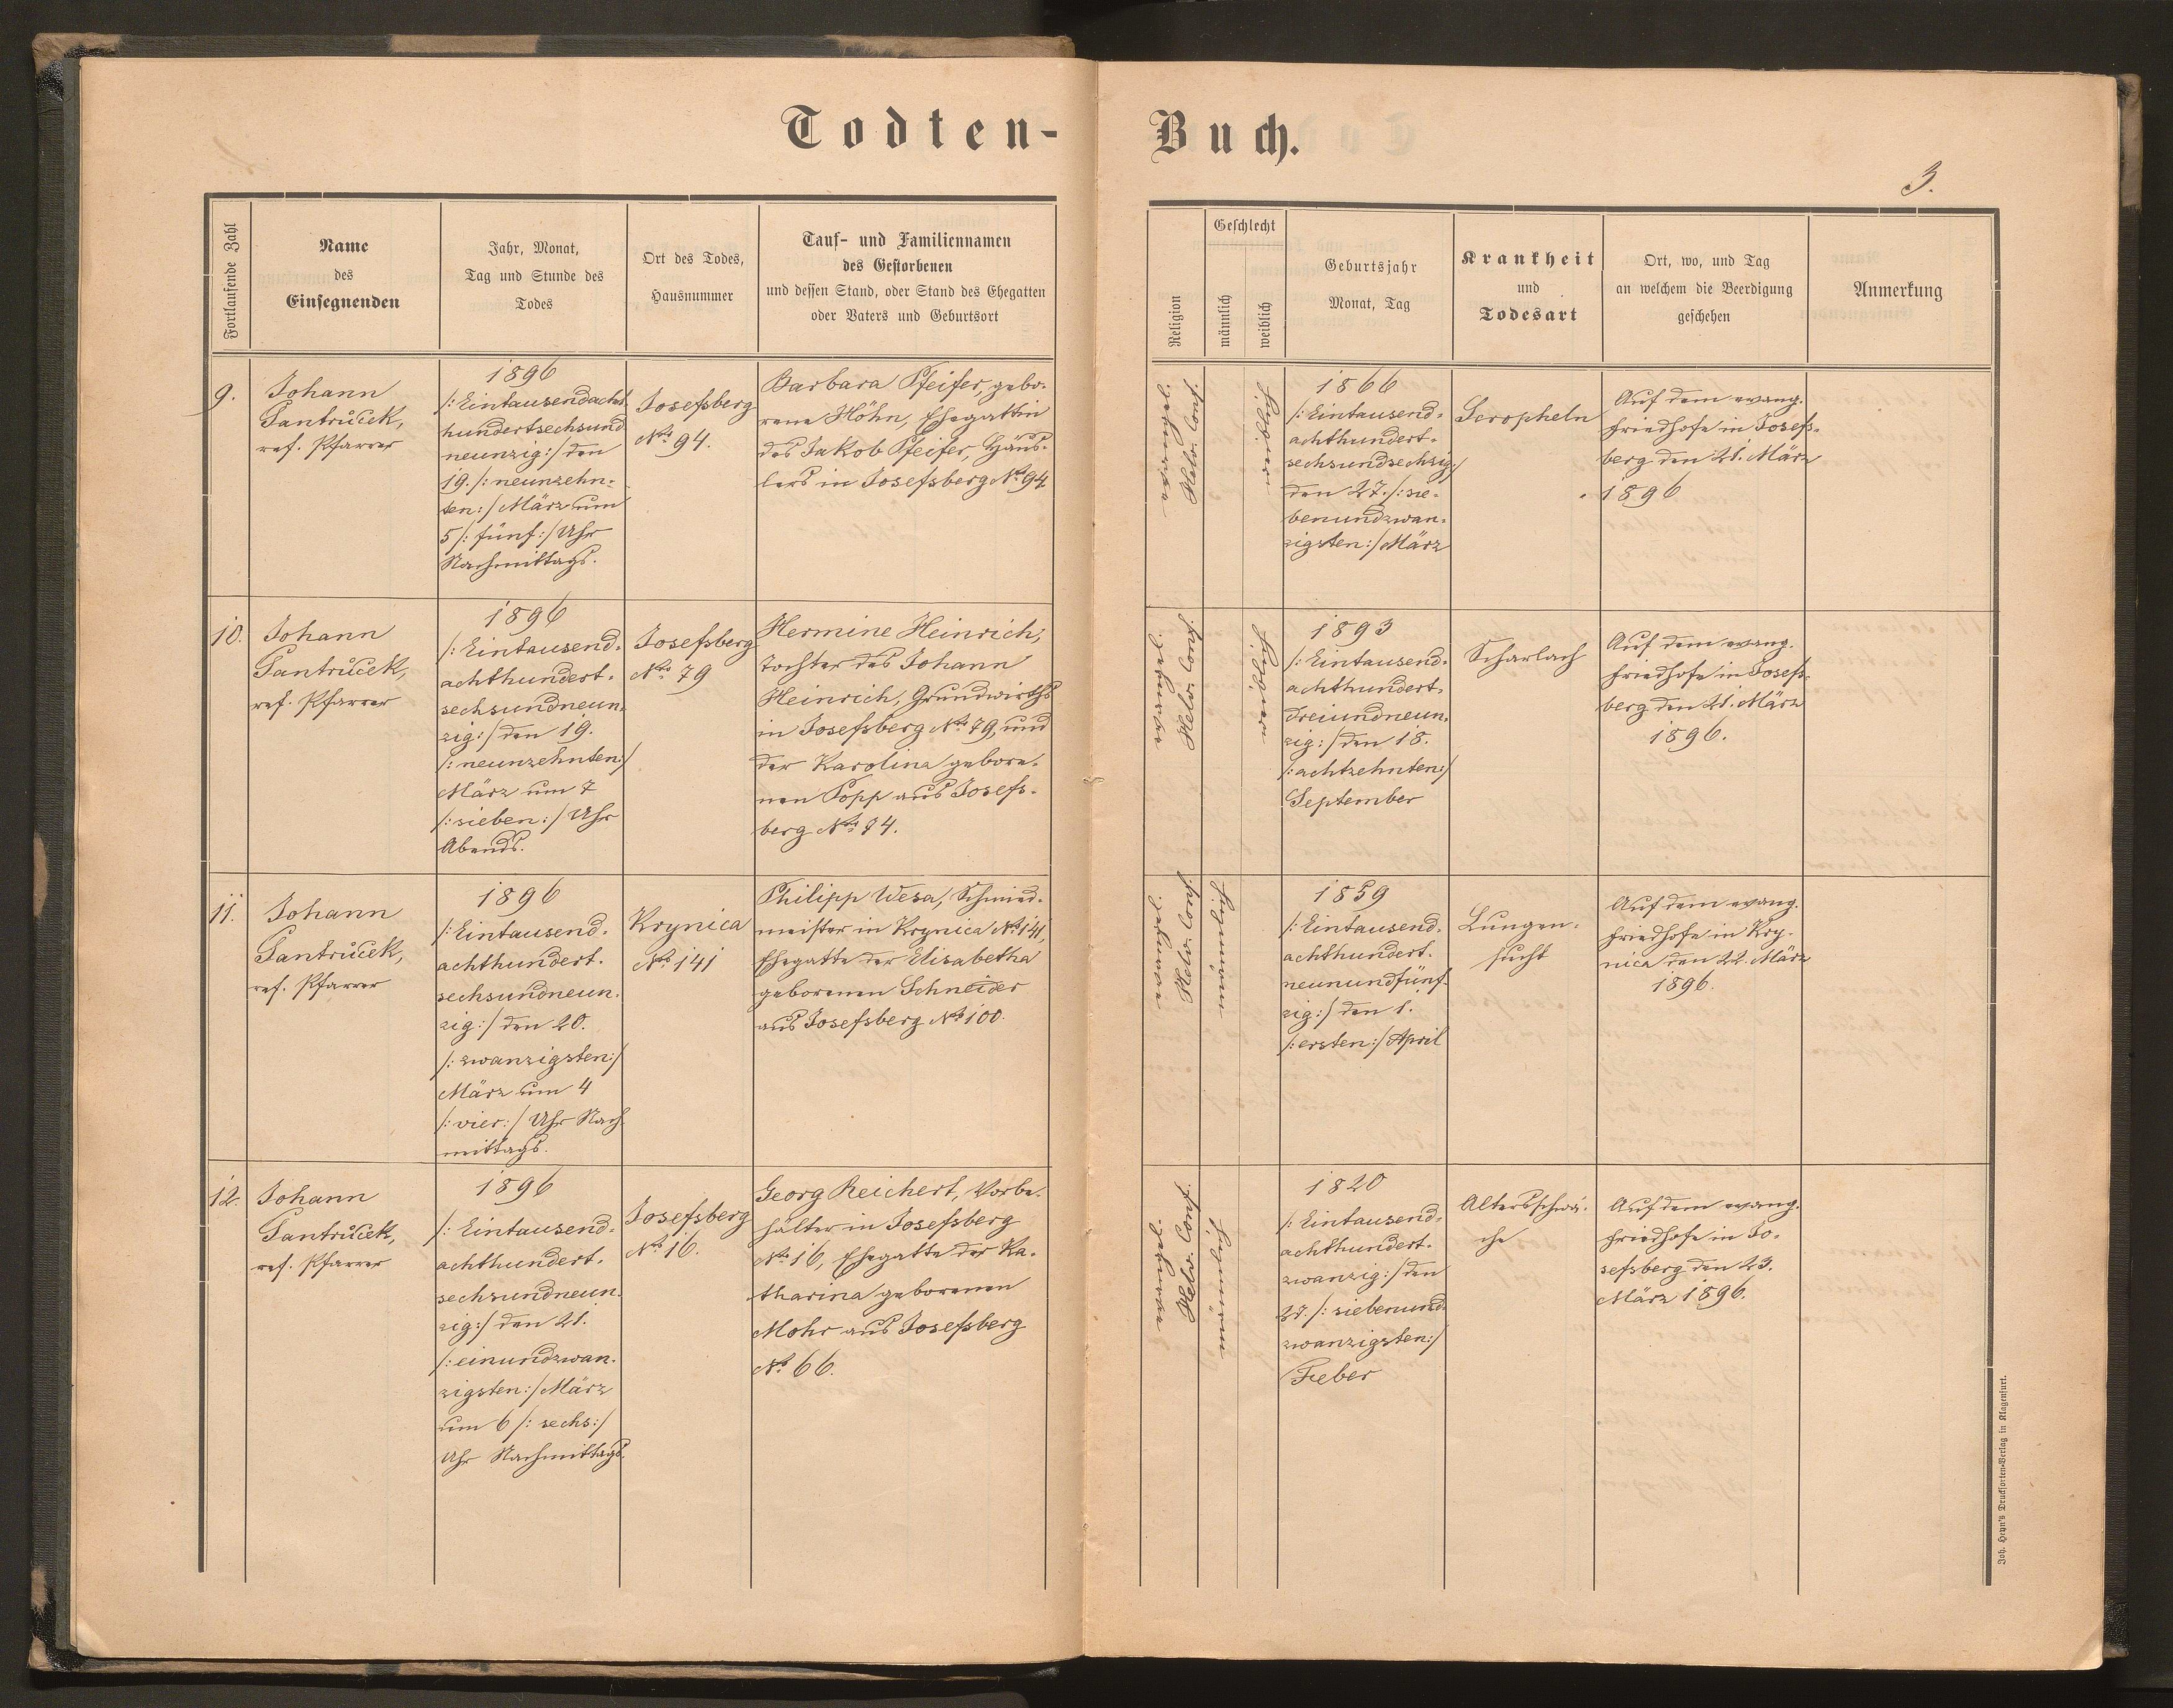 Todten-
Buch.
3.
Fortlaufende Zahl
Name
des
Einsegnenden
Jahr, Monat,
Tag und Stunde des
Todes
Ort des Todes,
Hausnummer
Tauf- und Familiennamen
des Gestorbenen
und dessen Stand, oder Stand des Ehegatten
oder Vaters und Geburtsort
Religion
Geschlecht
männlich
weiblich
Geburtsjahr
Monat, Tag
Krankheit
und
Todesart
Ort, wo, und Tag
an welchem die Beerdigung
geschehen
Anmerkung
9.
Johann
Santrůček,
ref. Pfarrer
1896
/: Eintausendacht
hundertsechsund
neunzig :/ den
19. /: neunzehn-
ten :/ März um
5 /: fünf :/ Uhr
Nachmittags.
Josefsberg
No 94.
Barbara Pfeifer, gebo-
rene Höhn, Ehegattin
des Jakob Pfeifer, Häus-
lers in Josefsberg No 94
Helv. Conf.
1866
/: Eintausend-
achthundert-
sechsundsechzig :/
den 27. /: sie-
benundzwan-
zigsten :/ März
Scropheln
Auf dem evang.
Friedhofe in Josefs-
berg den 21. März
1896
10.
Johann
Santrůček,
ref. Pfarrer
1896
/: Eintausend-
achthundert-
sechsundneun-
zig :/ den 19.
/: neunzehnten :/
März um 7
/: sieben :/ Uhr
Abends.
Josefsberg
No 79
Hermine Heinrich,
Tochter des Johann
Heinrich, Grundwirths
in Josefsberg No 79, und
der Karolina gebore-
nen Popp aus Josefs-
berg No 84.
Helv. Conf.
1893
/: Eintausend-
achthundert-
dreiundneun-
zig :/ den 18.
/: achtzehnten :/
September
Scharlach
Auf dem evang.
Friedhofe in Josefs-
berg den 21. März
1896.
11.
Johann
Santrůček,
ref. Pfarrer
1896
/: Eintausend-
achthundert-
sechsundneun-
zig :/ den 20.
/: zwanzigsten :/
März um 4
/: vier :/ Uhr Nach
mittags.
Krynica
No 141
Philipp Wesa, Schmied-
meister in Krynica No 141,
Ehegatte der Elisabetha
geborenen Schneider
aus Josefsberg No 100.
Helv. Conf.
1859
/: Eintausend-
achthundert-
neunundfünf-
zig :/ den 1.
/: ersten :/ April
Lungen-
sucht
Auf dem evang.
Friedhofe in Kry-
nica den 22. März
1896.
12.
Johann
Santrůček,
ref. Pfarrer
1896
/: Eintausend-
achthundert-
sechsundneun-
zig :/ den 21.
/: einundzwan-
zigsten :/ März
um 6 /: sechs :/
Uhr Nachmittags.
Josefsberg
No 16.
Georg Reichert, Vorbe-
hälter in Josefsberg
No 16, Ehegatte der Ka-
tharina geborenen
Mohr aus Josefsberg
No 66.
Helv. Conf.
1820
/: Eintausend-
achthundert-
zwanzig :/ den
27. /: siebenund-
zwanzigsten :/
Feber
Altersschwä-
che
Auf dem evang.
Friedhofe in Jo-
sefsberg den 23.
März 1896.
Joh. Heyn's Drucksorten-Verlag in Klagenfurt.